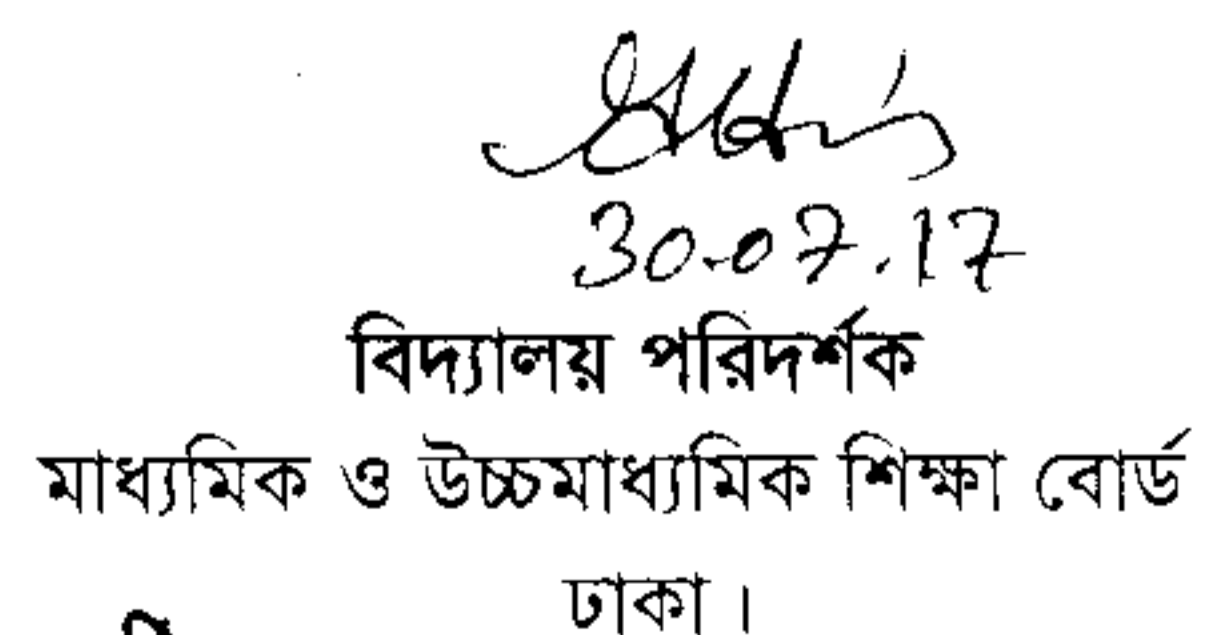 30.07.17
বিদ্যালয় পরিদর্শক
মাধ্যমিক ও উচ্চমাধ্যমিক শিক্ষা বোর্ড
ঢাকা।